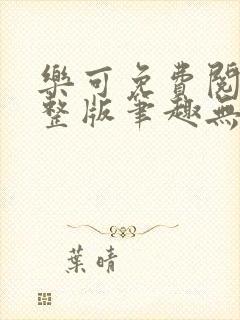 樂可免費閱
整版筆趣無
葉晴